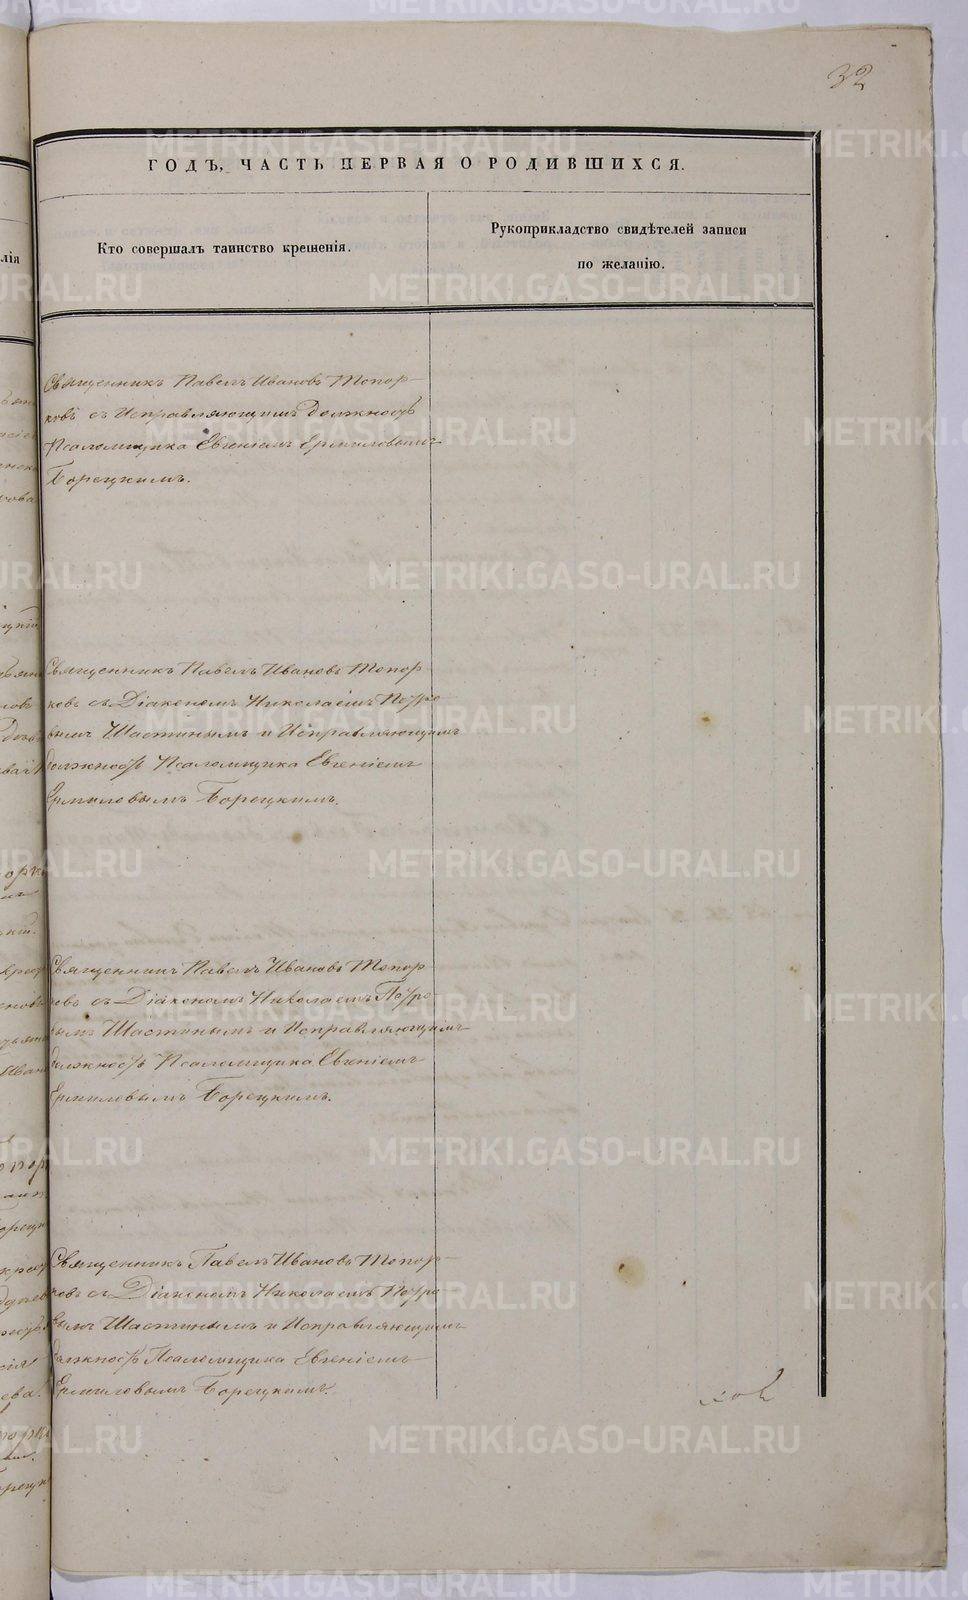 32
ГОДЪ, ЧАСТЬ ПЕРВАЯ О РОДИВШИХСЯ.
Кто совершалъ таинство крещенія.
Рукоприкладство свидѣтелей записи
по желанію.
Священникъ Павелъ Ивановъ Топор-
ковъ съ Исправляющимъ должность
Псаломщика Евгеніемъ Ермиловымъ
Борецкимъ.
Священникъ Павелъ Ивановъ Топор
ковъ съ Діакономъ Николаемъ Петро
вымъ Шастинымъ и Исправляющимъ
должность Псаломщика Евгеніемъ
Ермиловымъ Борецкимъ.
Священникъ Павелъ Ивановъ Топор
ковъ съ Діакономъ Николаемъ Петро
вымъ Шастинымъ и Исправляющимъ
должность Псаломщика Евгеніемъ
Ермиловымъ Борецкимъ.
Священникъ Павелъ Ивановъ Топор-
ковъ съ Діакономъ Николаемъ Петро
вымъ Шастинымъ и Исправляющимъ
должность Псаломщика Евгеніемъ
Ермиловымъ Борецкимъ.
METRIKI.GASO-URAL.RU